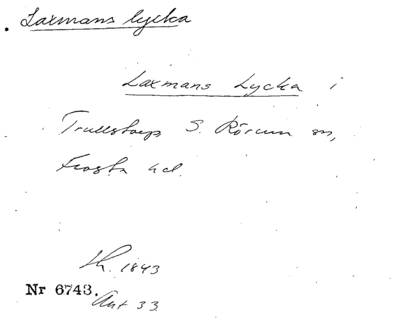 Laxmans lycka
Laxmans Lycka i
Trullstorps S. Rörum sn,
Frosta hd.
Lh. 1843
Nr 6743.
Akt 33